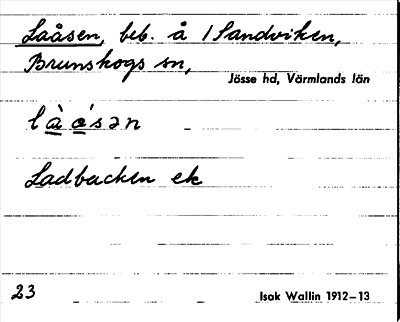 Laåsen, beb. å 1 Sandviken,
Brunskogs sn,
Jösse hd, Värmlands län
l à ǿ s ə n
Ladbacken ek
23
Isak Wallin 1912–13